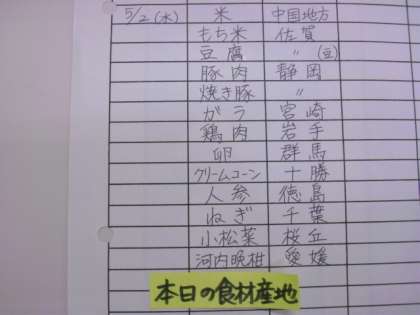 5/2(水) 米 中国地方
もち米 佐賀
豆腐 〃 (豆)
豚肉 静岡
焼き豚 〃
ガラ 宮崎
鶏肉 岩手
卵 群馬
クリームコーン 十勝
人参 徳島
ねぎ 千葉
小松菜 桜丘
河内晩柑 愛媛
本日の食材産地